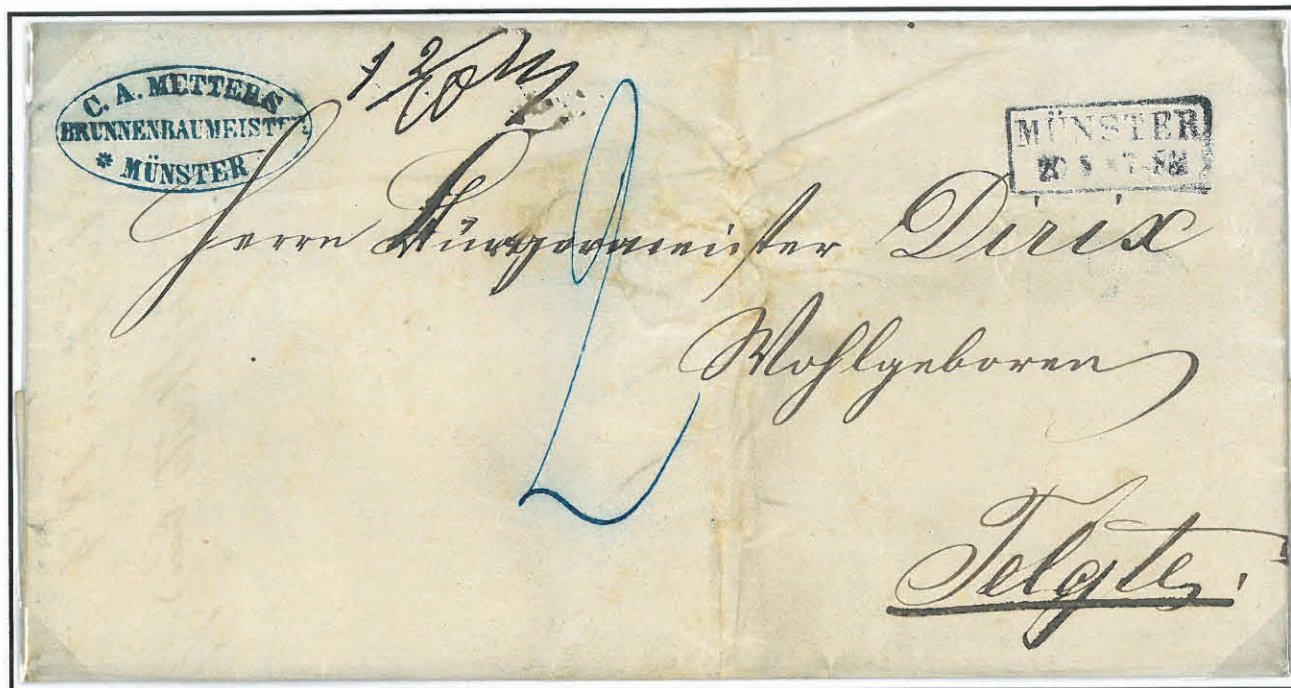 C. A. METTERS
BRUNNENBAUMEISTER
* MÜNSTER
MÜNSTER
2
Herrn Bürgermeister Dirix
Wohlgeboren
Telgte.